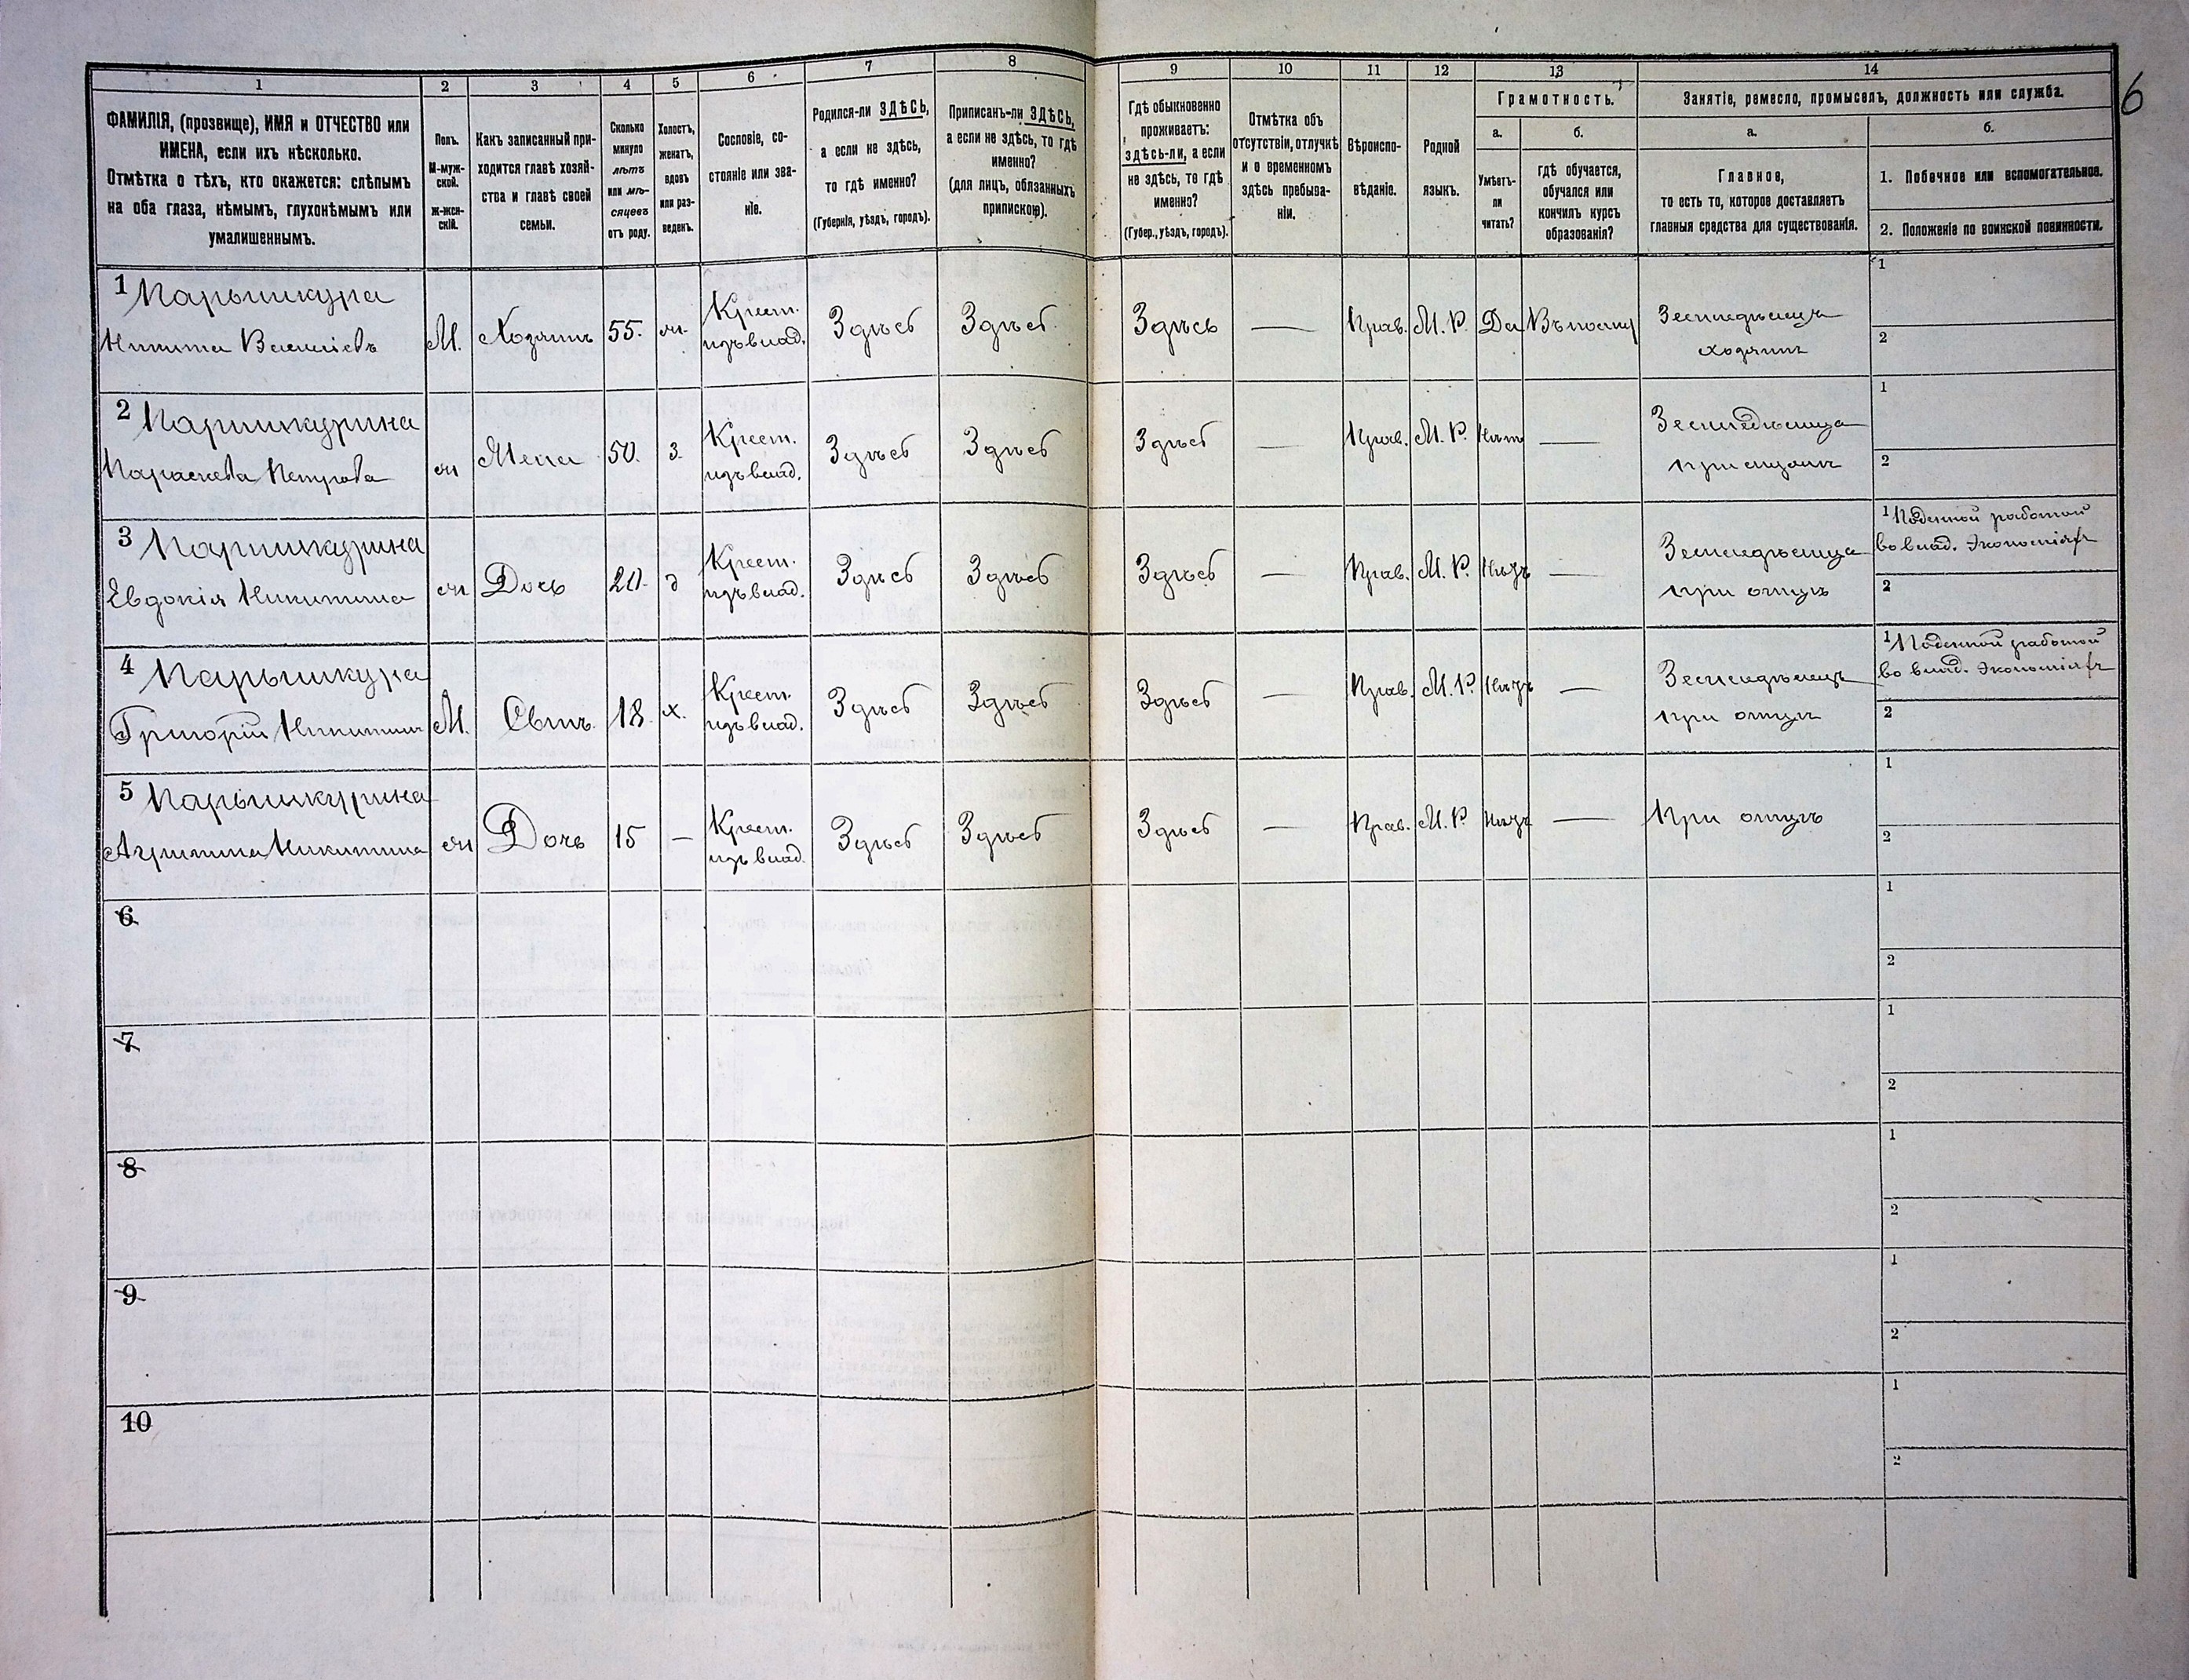 6
1 2 3 4 5 6 7 8 9 10 11 12 13 14
ФАМИЛІЯ, (прозвище), ИМЯ и ОТЧЕСТВО или
ИМЕНА, если ихъ нѣсколько.
Отмѣтка о тѣхъ, кто окажется: слѣпымъ
на оба глаза, нѣмымъ, глухонѣмымъ или
умалишеннымъ.
Полъ.
М-муж-
ской.
ж-жен-
скій.
Какъ записанный при-
ходится главѣ хозяй-
ства и главѣ своей
семьи.
Сколько
минуло
лѣтъ
или мѣ-
сяцевъ
отъ роду.
Холостъ,
женатъ,
вдовъ
или раз-
веденъ.
Сословіе, со-
стояніе или зва-
ніе.
Родился-ли ЗДѢСЬ,
а если не здѣсь,
то гдѣ именно?
(Губернія, уѣздъ, городъ).
Приписанъ-ли ЗДѢСЬ,
а если не здѣсь, то гдѣ
именно?
(для лицъ, обязанныхъ
припискою).
Гдѣ обыкновенно
проживаетъ:
здѣсь-ли, а если
не здѣсь, то гдѣ
именно?
(Губер., уѣздъ, городъ).
Отмѣтка объ
отсутствіи, отлучкѣ
и о временномъ
здѣсь пребыва-
ніи.
Вѣроиспо-
вѣданіе.
Родной
языкъ.
Грамотность.
а.
Умѣетъ-
ли
читать?
б.
гдѣ обучается,
обучался или
кончилъ курсъ
образованія?
Занятіе, ремесло, промыселъ, должность или служба.
а.
Главное,
то есть то, которое доставляетъ
главныя средства для существованія.
б.
1. Побочное или вспомогательное.
2. Положеніе по воинской повинности.
1 Парышкура
Никита Васильевъ
М. Хозяинъ 55. ж. Крест. Здѣсь Здѣсь Здѣсь — Прав. М. Р. Да
изъ влад.
Земледѣлецъ
хозяинъ
1
2
2 Паришкурина
Параскева Петрова
ж Жена 50. з. Крест. Здѣсь Здѣсь Здѣсь — Прав. М. Р. Нѣтъ —
изъ влад.
Земледѣлица
при
1
2
3 Паришкурина
Евдокія Никитина
ж Дочь 20. д Крест. Здѣсь Здѣсь Здѣсь — Прав. М. Р. —
изъ влад.
Земледѣлица
при отцѣ
1 Поденной работой
во влад. Экономіях
2
4 Парышкура
Григорій Никитинъ
М. Сынъ. 18. х. Крест. Здѣсь Здѣсь Здѣсь — Прав. М. Р. —
изъ влад.
Земледѣлецъ
при отцѣ
1 Поденной работой
во влад. Экономіях
2
5 Парышкурина
Агрипина Никитина
ж Дочь 15 — Крест. Здѣсь Здѣсь Здѣсь — Прав. М. Р. —
изъ влад.
При отцѣ
1
2
6
1
2
7
1
2
8
1
2
9
1
2
10
1
2